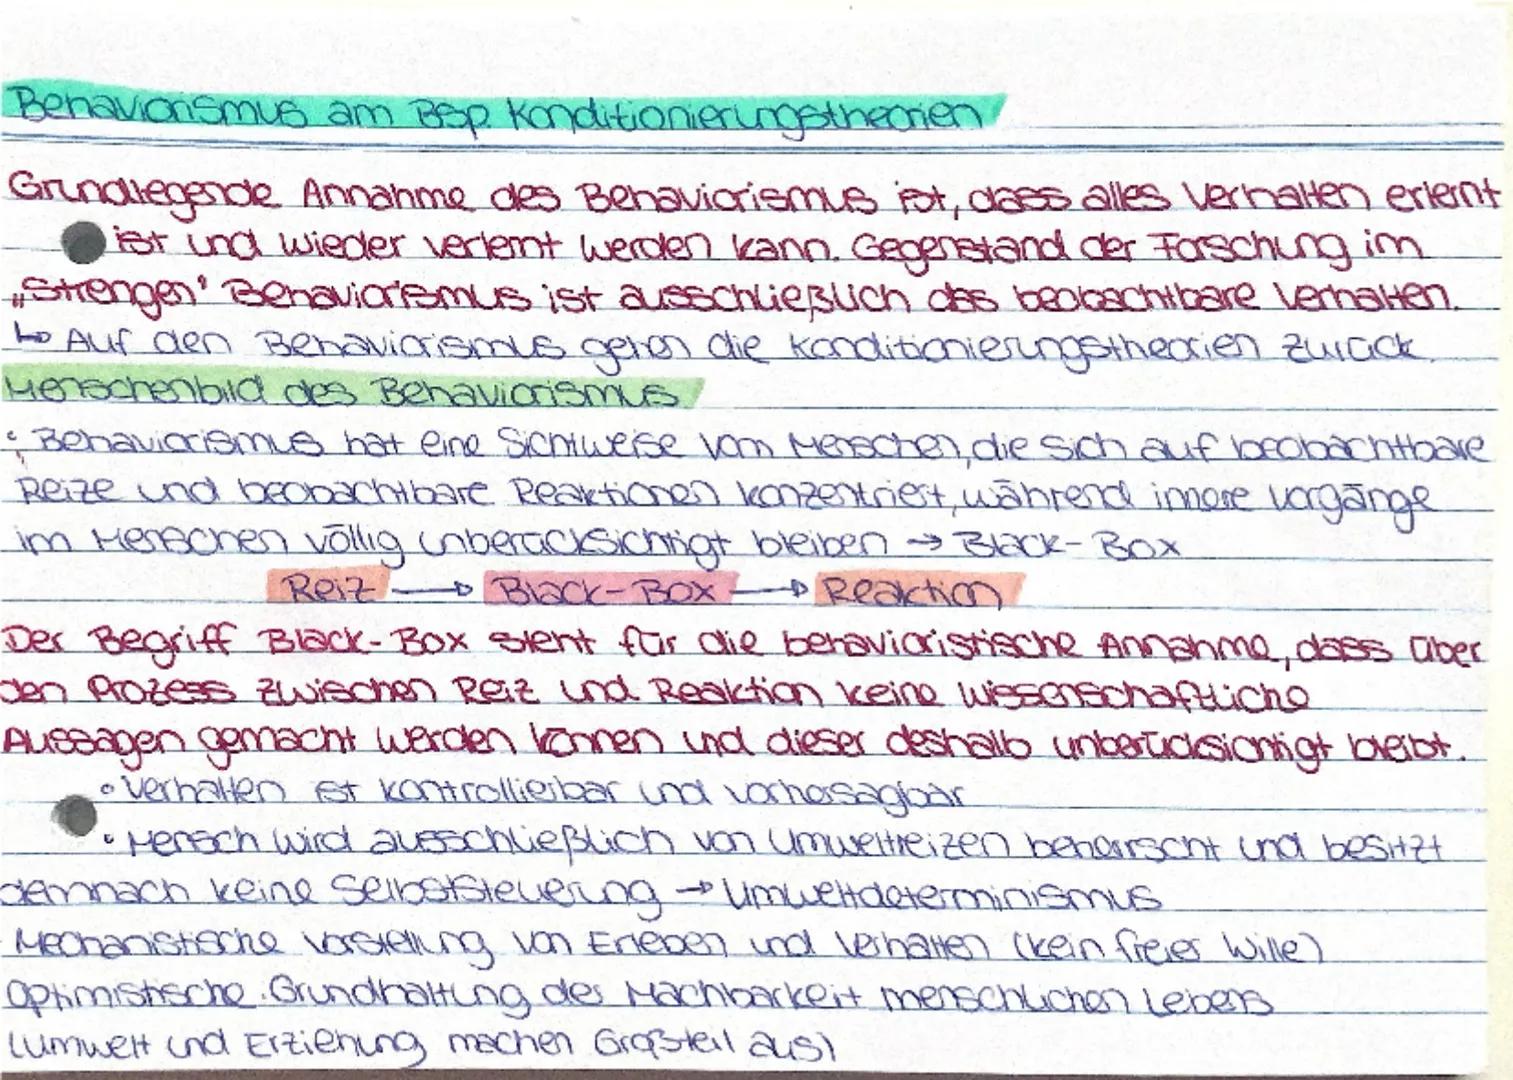 Behaviorismus am Bsp. Konditionierungstheorien
Grundlegende Annahme des Behaviorismus ist, dass alles Verhalten erlernt
ist und wieder verlernt werden kann. Gegenstand der Forschung im
„Strengen" Behaviorismus ist ausschließlich das beobachtbare Verhalten.
↳ Auf den Behaviorismus gehen die Konditionierungstheorien zurück.
Menschenbild des Behaviorismus
• Behaviorismus hat eine Sichtweise vom Menschen, die sich auf beobachtbare
Reize und beobachtbare Reaktionen konzentriert, während innere Vorgänge
im Menschen völlig unberücksichtigt bleiben → Black-Box
Reiz → Black-Box → Reaktion
Der Begriff Black-Box steht für die behavioristische Annahme, dass über
den Prozess zwischen Reiz und Reaktion keine wissenschaftliche
Aussagen gemacht werden können und dieser deshalb unberücksichtigt bleibt.
• Verhalten ist kontrollierbar und vorhersagbar
• Mensch wird ausschließlich von Umweltreizen beherrscht und besitzt
demnach keine Selbststeuerung → Umweltdeterminismus
Mechanistische Vorstellung von Erleben und Verhalten (kein freier Wille)
Optimistische Grundhaltung der Machbarkeit menschlichen Lebens
(Umwelt und Erziehung machen Großteil aus)